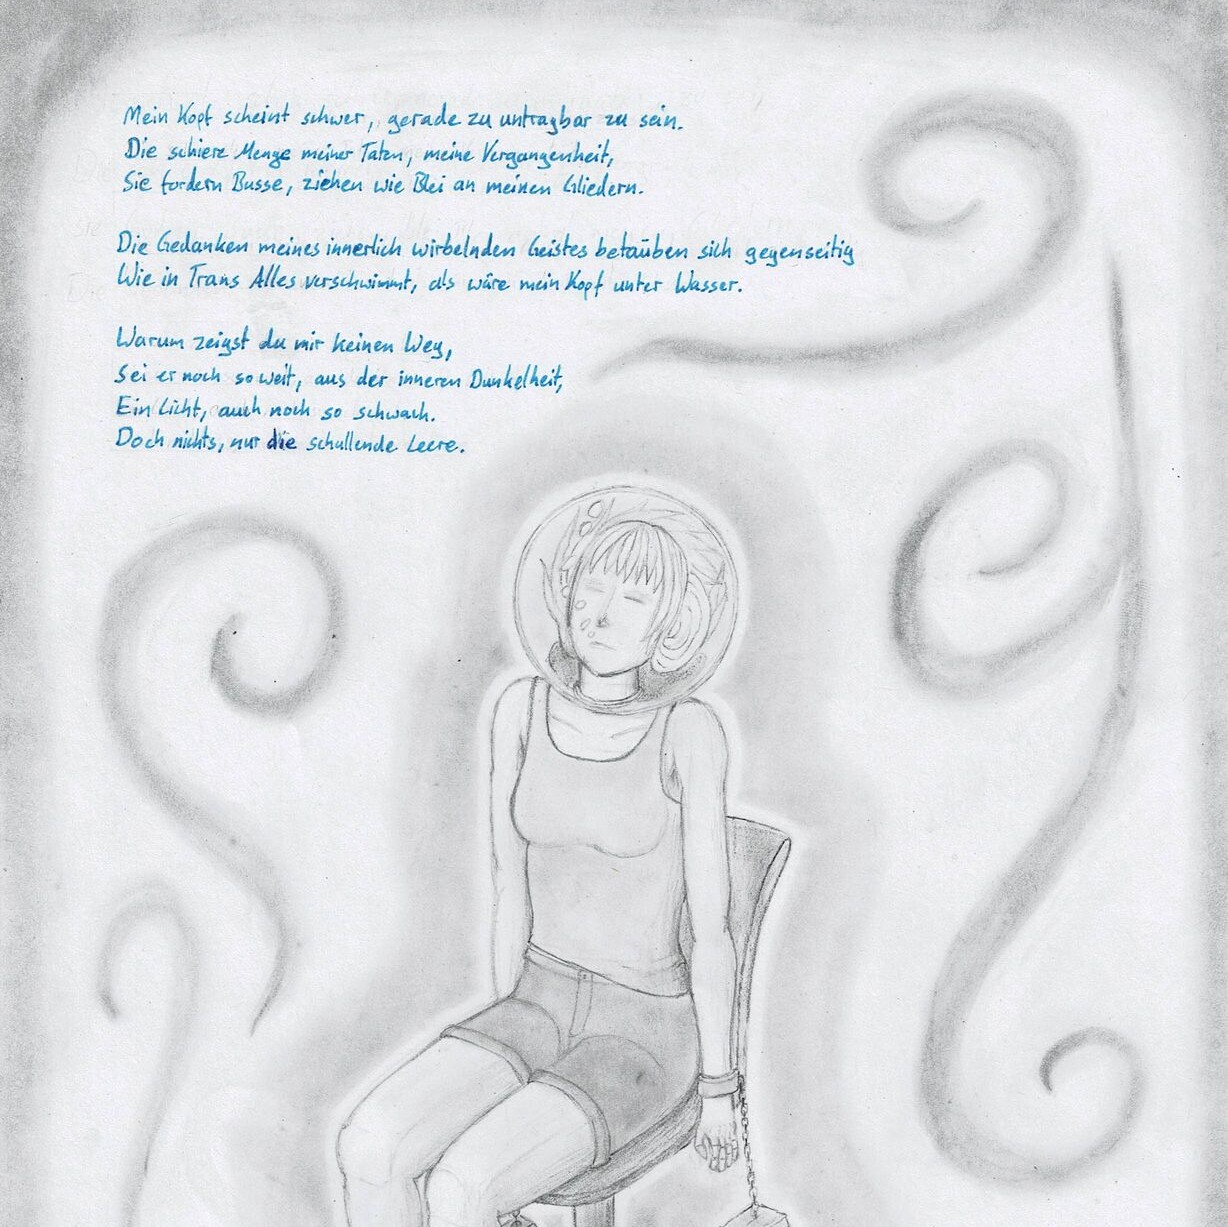 Mein Kopf scheint schwer, gerade zu untragbar zu sein.
Die schiere Menge meiner Taten, meine Vergangenheit,
Sie fordern Busse, ziehen wie Blei an meinen Gliedern.
Die Gedanken meines innerlich wirbelnden Geistes betäuben sich gegenseitig
Wie in Trans Alles verschwimmt, als wäre mein Kopf unter Wasser.
Warum zeigst du mir keinen Weg,
Sei er noch so weit, aus der inneren Dunkelheit,
Ein Licht, auch noch so schwach.
Doch nichts, nur die schallende Leere.